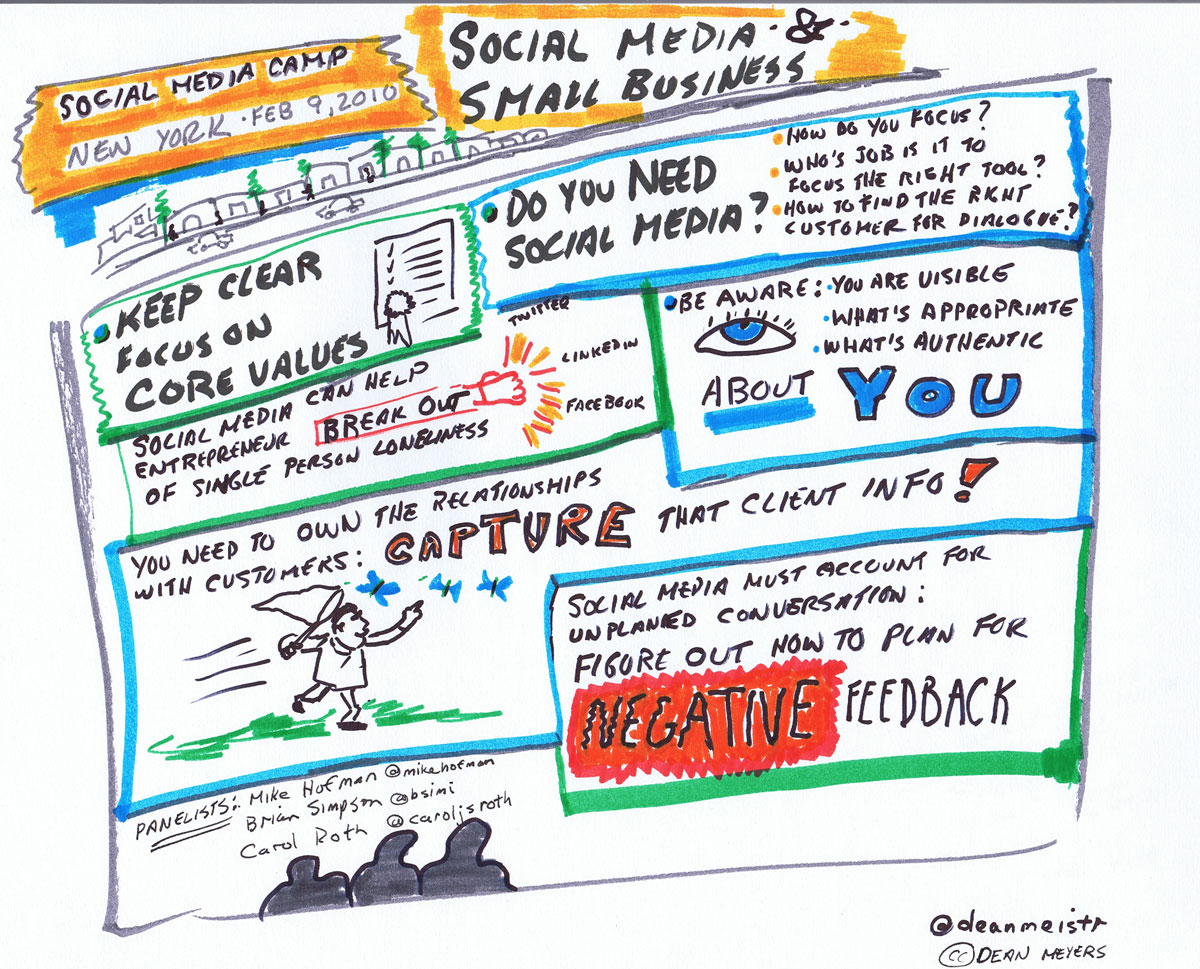 SOCIAL MEDIA CAMP
NEW YORK · FEB 9, 2010
SOCIAL MEDIA · & ·
SMALL BUSINESS
• DO YOU NEED
SOCIAL MEDIA?
• HOW DO YOU FOCUS?
• WHO'S JOB IS IT TO
FOCUS THE RIGHT TOOL?
• HOW TO FIND THE RIGHT
CUSTOMER FOR DIALOGUE?
• KEEP CLEAR
FOCUS ON
CORE VALUES
SOCIAL MEDIA CAN HELP
ENTREPRENEUR BREAK OUT
OF SINGLE PERSON LONELINESS
TWITTER
LINKEDIN
FACEBOOK
• BE AWARE: • YOU ARE VISIBLE
• WHAT'S APPROPRIATE
• WHAT'S AUTHENTIC
ABOUT YOU
YOU NEED TO OWN THE RELATIONSHIPS
WITH CUSTOMERS: CAPTURE THAT CLIENT INFO!
SOCIAL MEDIA MUST ACCOUNT FOR
UNPLANNED CONVERSATION:
FIGURE OUT HOW TO PLAN FOR
NEGATIVE FEEDBACK
PANELISTS: Mike Hofman @mikehofman
Brian Simpson @bsimi
Carol Roth @caroljsroth
@deanmeistr
CC DEAN MEYERS